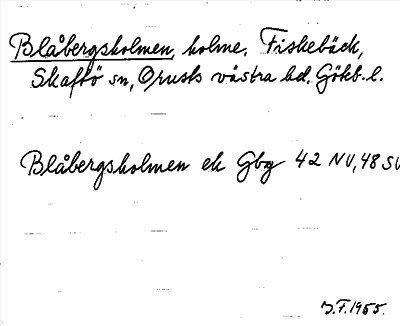 Blåbergsholmen, holme, Fiskebäck,
Skaftö sn, Orusts västra hd. Göteb. l.
Blåbergsholmen ek Gbg 42 NV, 48 SV
J.F. 1955.